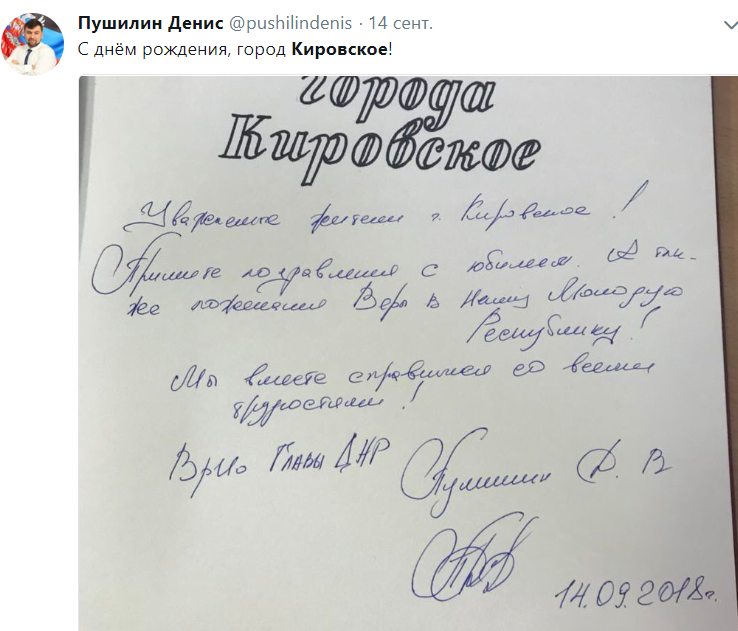 Пушилин Денис @pushilindenis · 14 сент.
С днём рождения, город Кировское!
города
Кировское
Уважаемые жители г. Кировское!
Примите поздравления с юбилеем. А так-
же пожелания Веры в Нашу Молодую
Республику!
Мы вместе справимся со всеми
трудностями!
ВриО Главы ДНР Пушилин Д. В
14.09.2018г.